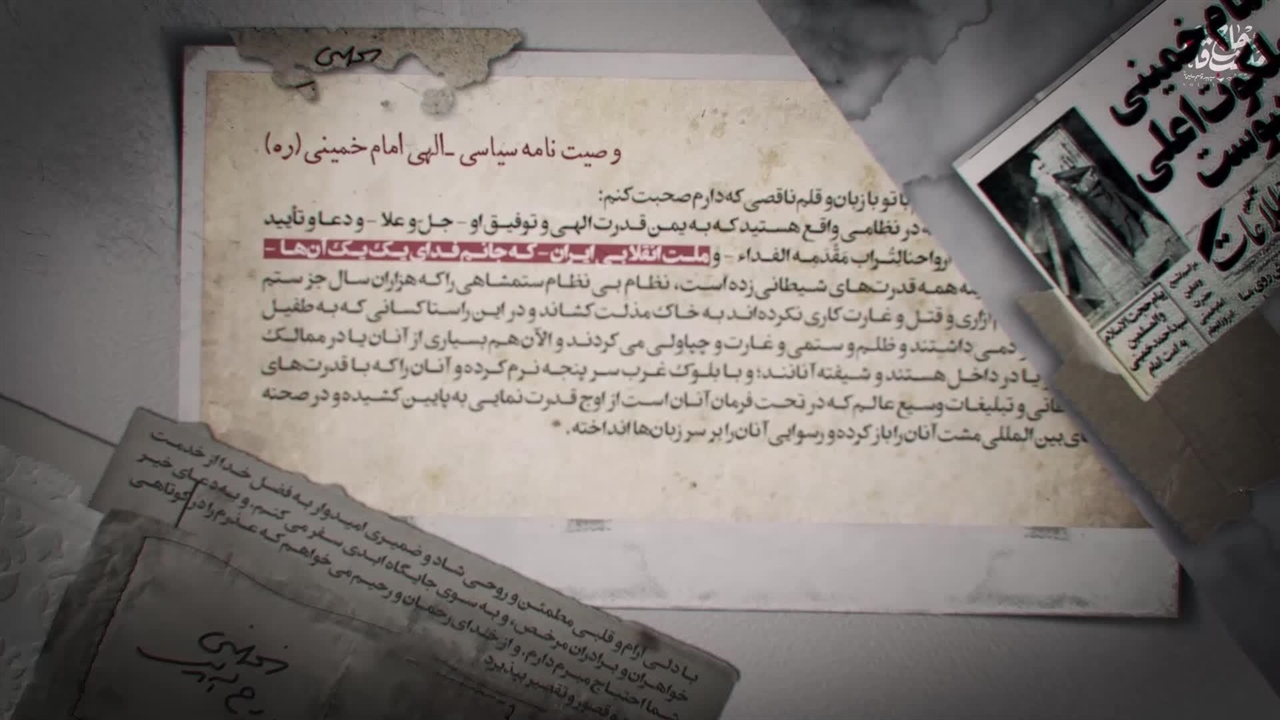 وصیت نامه سیاسی ـ الهی امام خمینی (ره)
با تو با زبان و قلم ناقصی که دارم صحبت کنم:
در نظامی واقع هستید که به یمن قدرت الهی و توفیق او - جل و علا - و دعا و تأیید
ارواحنا لِتُراب مَقْدَمه الفداء - و ملت انقلابی ایران - که جانم فدای یک یک آن‌ها -
همه قدرت‌های شیطانی زده است، نظام بی نظام ستمشاهی را که هزاران سال جز ستم
آزاری و قتل و غارت کاری نکرده‌اند به خاک مذلت کشاند و در این راستا کسانی که به طفیل
دمی داشتند و ظلم و ستمی و غارت و چپاولی می کردند و الآن هم بسیاری از آنان یا در ممالک
یا در داخل هستند و شیفته آنانند؛ و با بلوک غرب سر پنجه نرم کرده و آنان را که با قدرت‌های
و تبلیغات وسیع عالم که در تحت فرمان آنان است از اوج قدرت نمایی به پایین کشیده و در صحنه
بین المللی مشت آنان را باز کرده و رسوایی آنان را بر سر زبان‌ها انداخته.
امام خمینی
ملکوت اعلی
پیوست
اطلاعات
با دلی آرام و قلبی مطمئن و روحی شاد و ضمیری امیدوار به فضل خدا از خدمت
خواهران و برادران مرخص، و به سوی جایگاه ابدی سفر می کنم. و به دعای خیر
شما احتیاج مبرم دارم. و از خدای رحمان و رحیم می خواهم که عذرم را در کوتاهی
و قصور و تقصیر بپذیرد